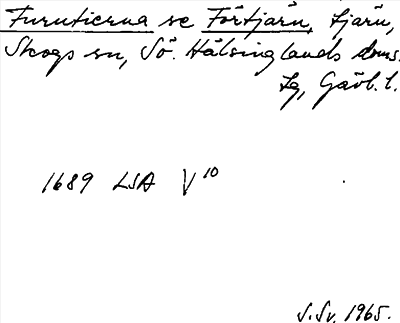 Furutierna se Förtjärn, tjärn,
Skogs sn, Sö. Hälsinglands doms.
lg, Gävl. l.
1689 LSA V 10
S. Sv. 1965.